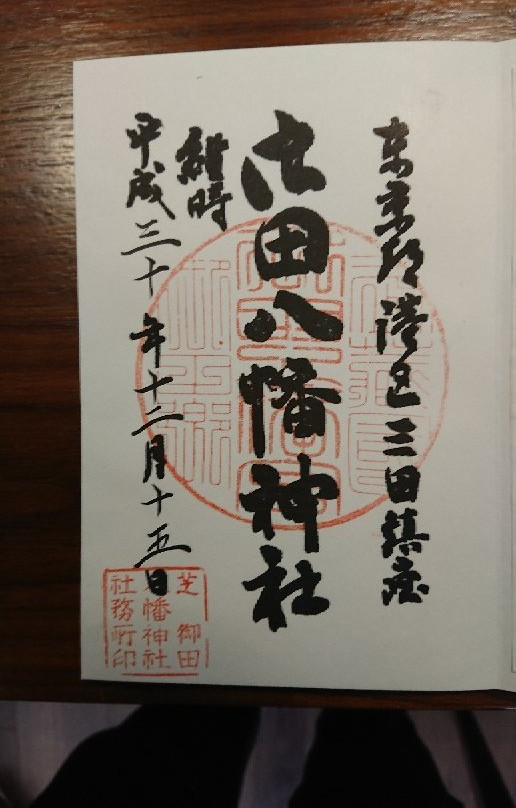 東京都港区三田鎮座
御田八幡神社
維時
平成三十年十二月十五日
芝御田
八幡神社
社務所印